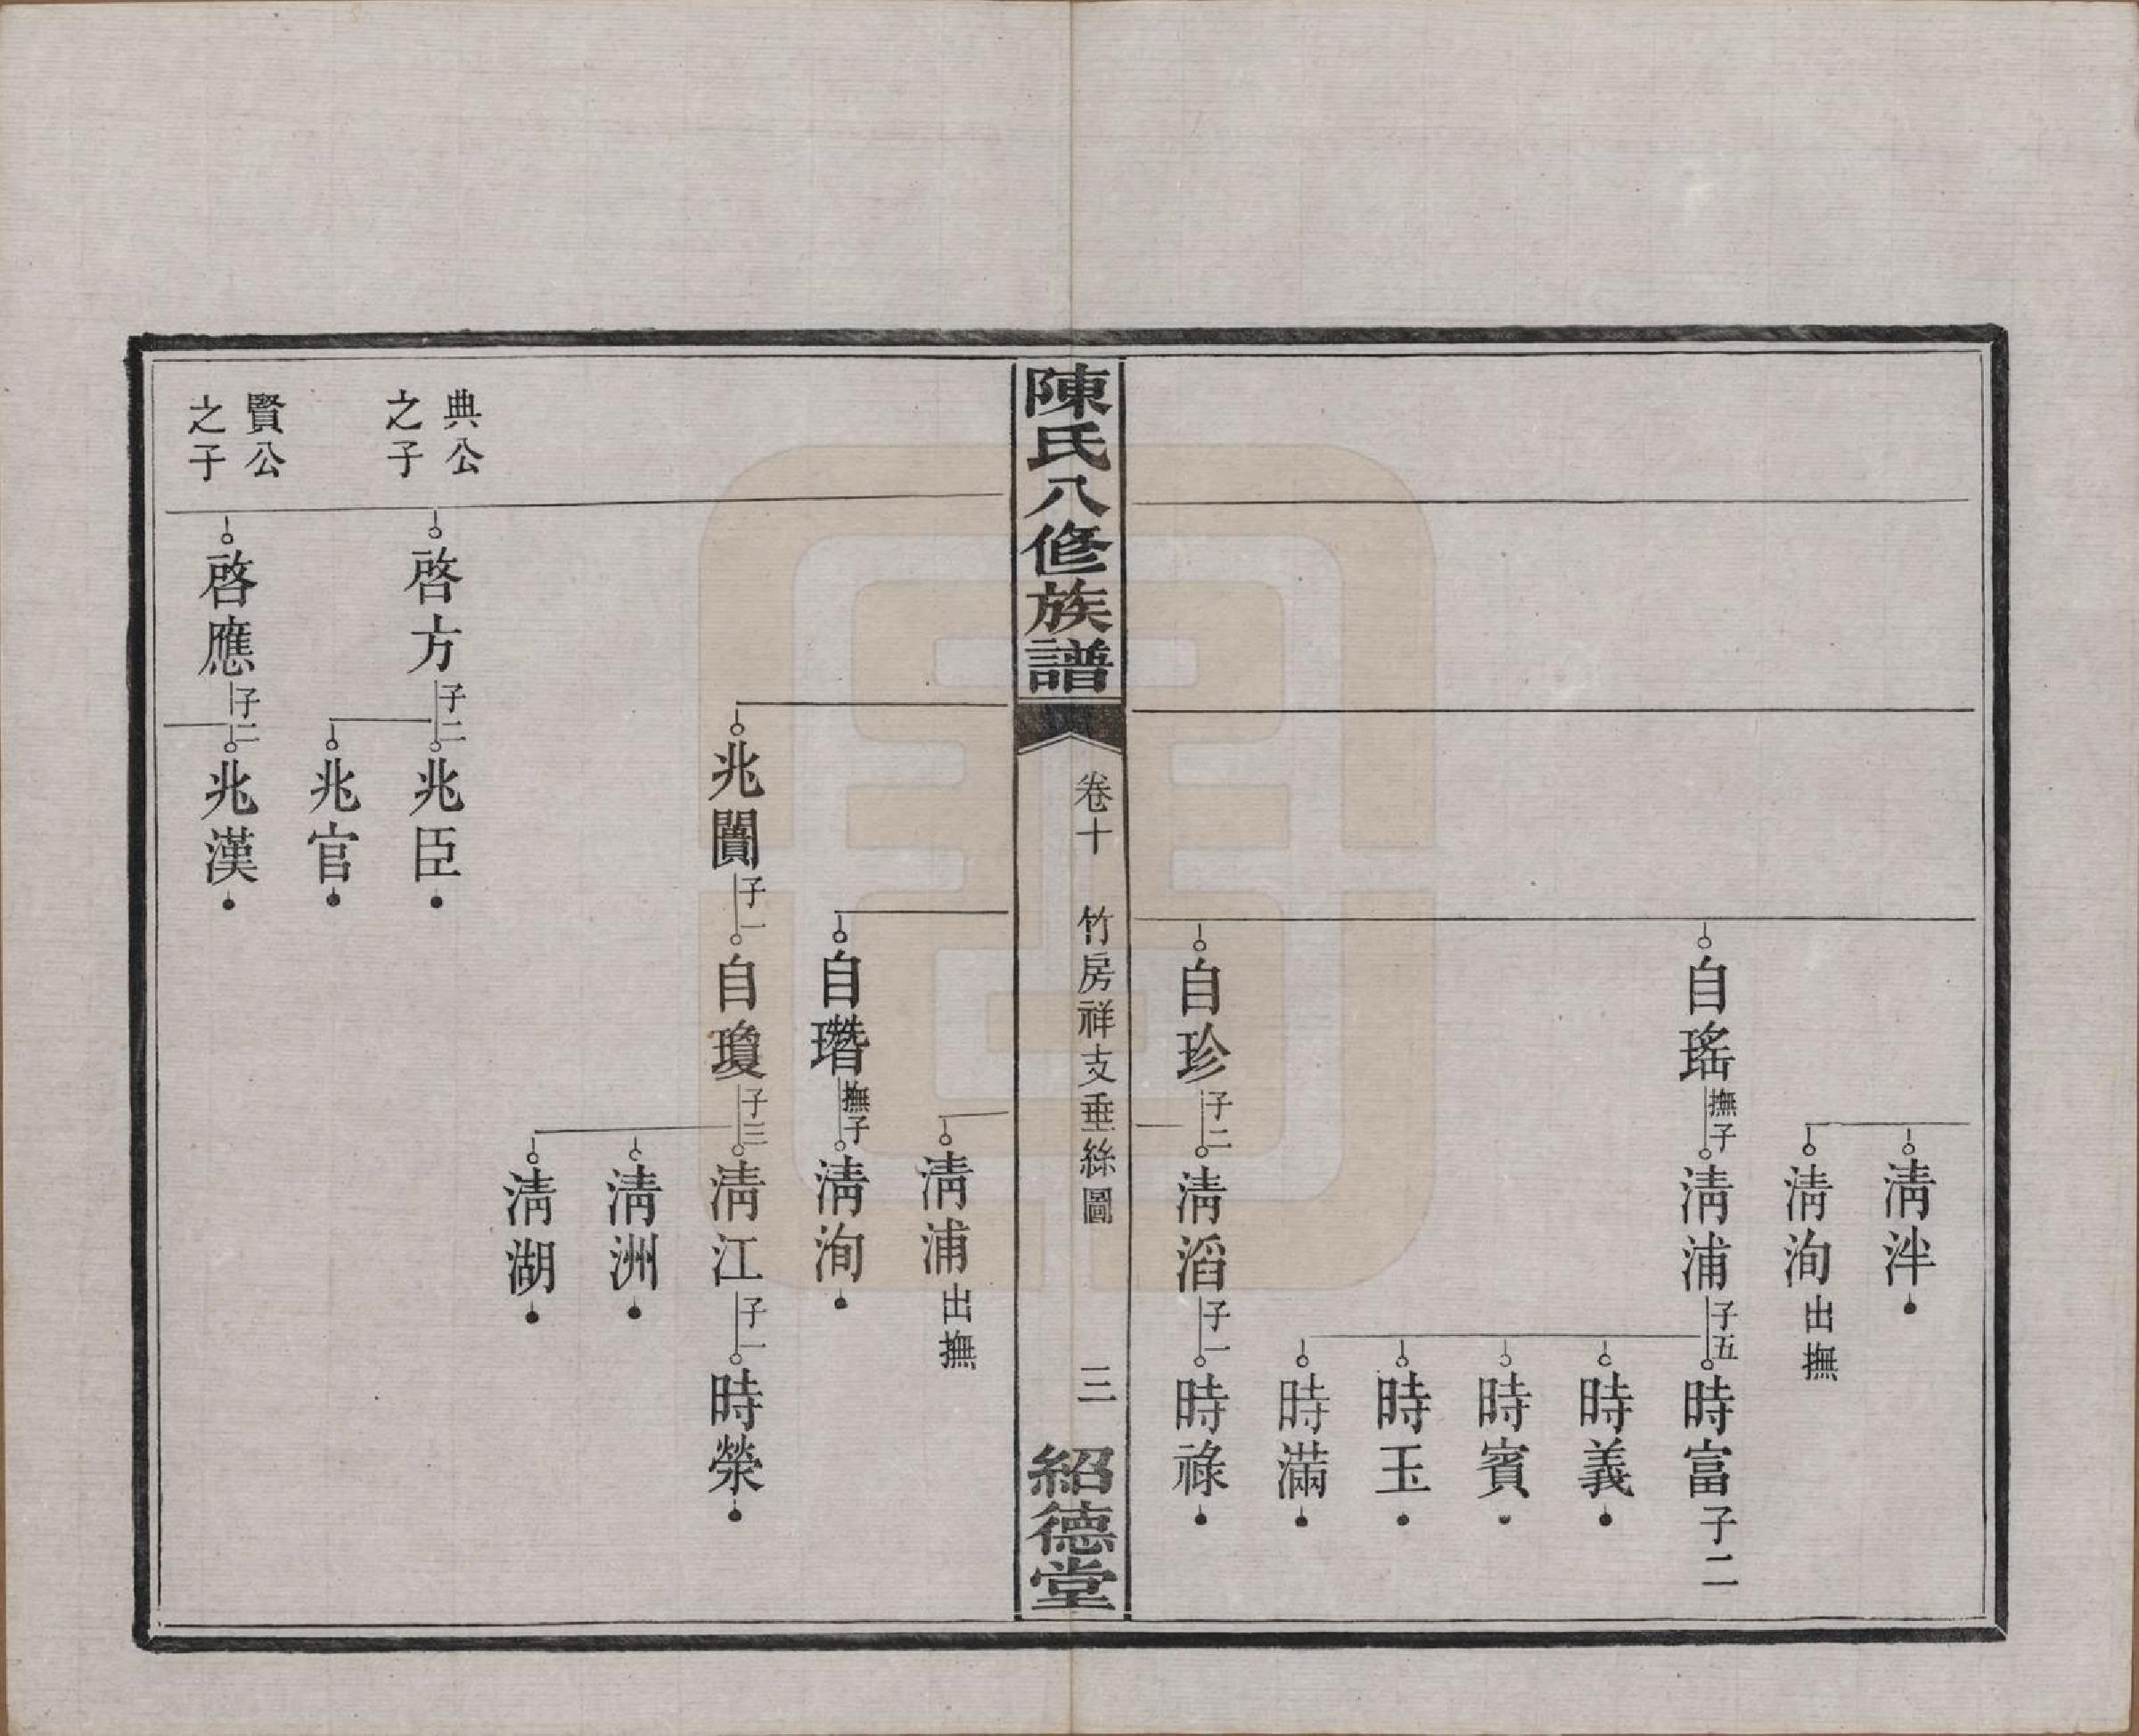 淸泮
淸洵出撫
自瑤撫子淸浦子五時富子二
時義
時賓
時玉
時滿
自珍子二淸滔子一時祿
陳氏八修族譜
卷十 竹房祥支垂絲圖 三
紹德堂
淸浦出撫
自瓚撫子淸洵
兆闠子一自瓊子三淸江子一時榮
淸洲
淸湖
典公之子
啓方子二兆臣
兆官
賢公之子
啓應子二兆漢